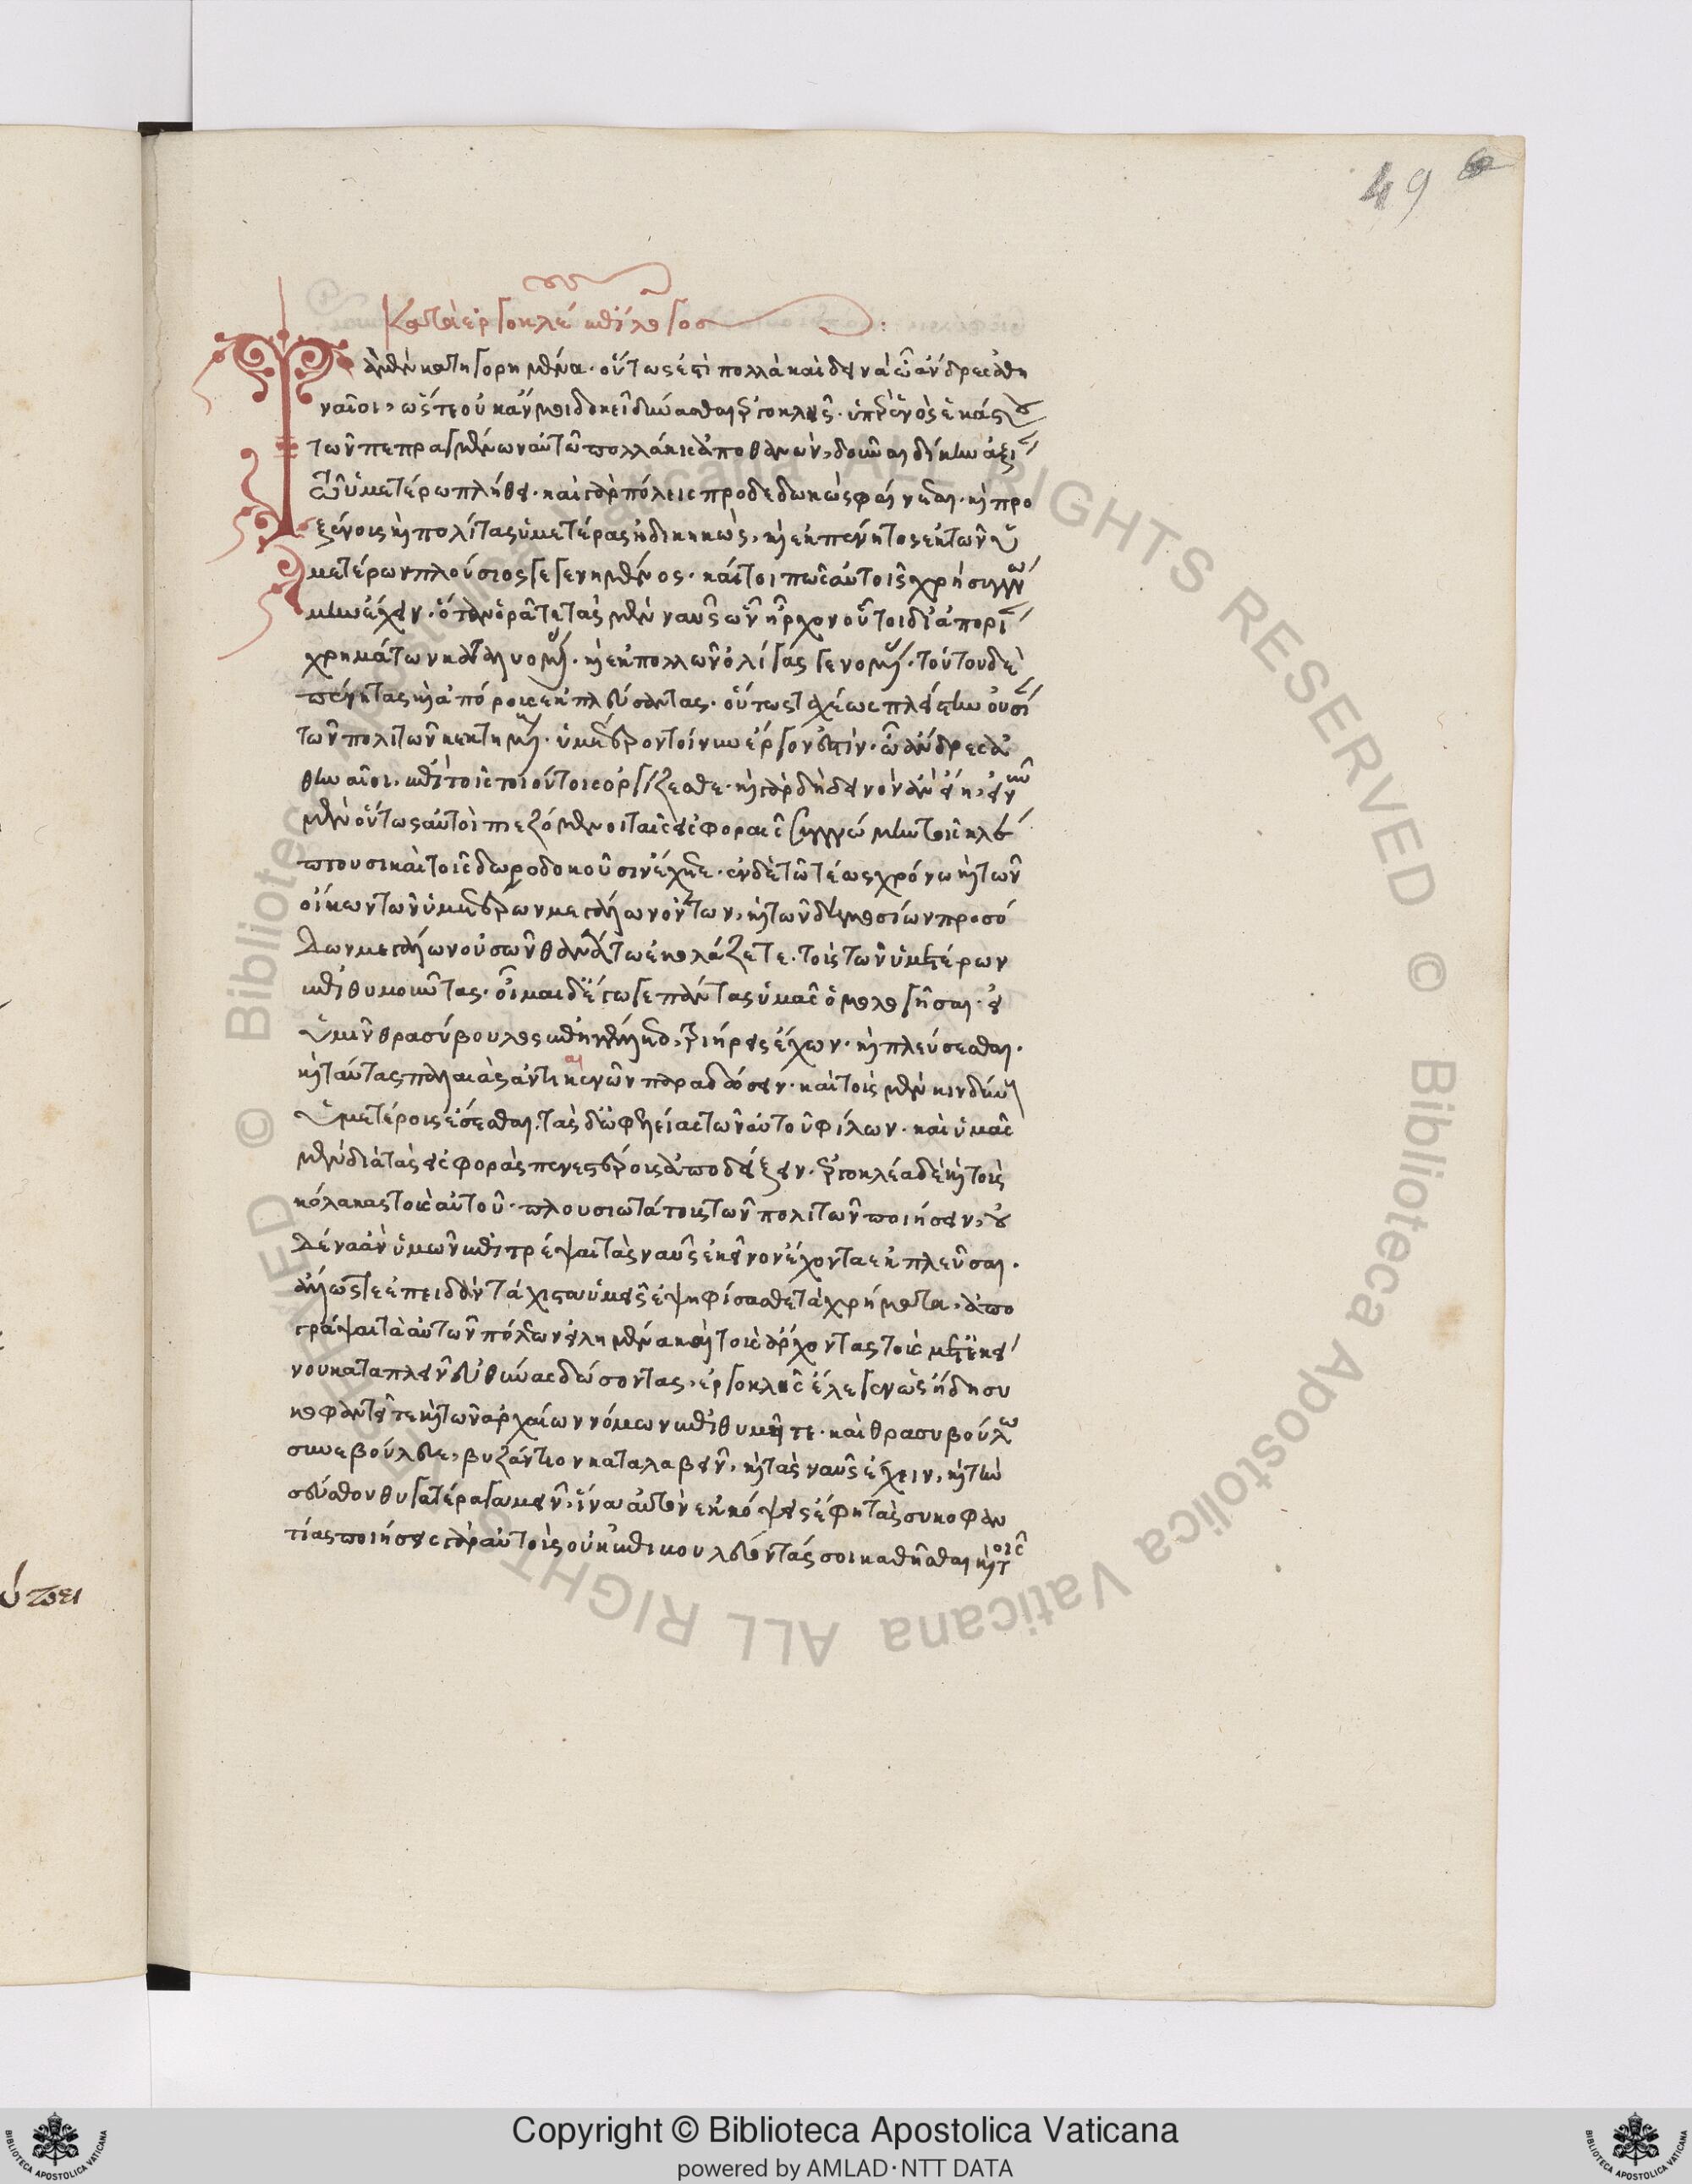 49
Κατὰ ἐργοκλέους ἐπίλογος :
Τὰ μὲν κατηγορημένα· οὕτως ἐστὶ πολλὰ καὶ δεινὰ ὦ ἄνδρες ἀθη
ναῖοι, ὥστε οὐκ ἄν μοι δοκεῖ δύνασθαι ἐργοκλῆς· ὑπὲρ ἑνὸς ἑκάστου
τῶν πεπραγμένων αὐτῶ πολλάκις ἀποθανὼν, δοῦναι δίκην ἀξίαν
τῶ ὑμετέρω πλήθει· καὶ γὰρ πόλεις προδεδωκὼς φαίνεται· καὶ προ
ξένους καὶ πολίτας ὑμετέρας ἠδικηκὼς, καὶ ἐκ πένητος ἐκ τῶν ὑ
μετέρων πλούσιος γεγενημένος· καίτοι πῶς αὐτοῖς χρὴ συγγνώ
μην ἔχειν· ὅταν ὁρᾶτε τὰς μὲν ναῦς ὧν ἦρχον οὗτοι δι' ἀπορίαν
χρημάτων καταλυομένας· καὶ ἐκ πολλῶν ὀλίγας γενομένας· τούτους δὲ
πένητας καὶ ἀπόρους ἐκπλεύσαντας· οὕτως ταχέως πλείστην οὐσίαν
τῶν πολιτῶν κεκτημένους· ὑμέτερον τοίνυν ἔργον ἐστὶν· ὦ ἄνδρες ἀ
θηναῖοι, ἐπὶ τοῖς τοιούτοις ὀργίζεσθε· καὶ γὰρ δὴ δεινὸν ἂν εἴη, εἰ νῦν
μὲν οὕτως αὐτοὶ πιεζόμενοι ταῖς εἰσφοραῖς συγγνώμην τοῖς κλέ
πτουσι καὶ τοῖς δωροδοκοῦσιν ἔχητε· ἐν δὲ τῶ τέως χρόνω καὶ τῶν
οἴκων τῶν ὑμετέρων μεγάλων ὄντων, καὶ τῶν δημοσίων προσό
δων μεγάλων οὐσῶν θανάτω ἐκολάζετε· τοὺς τῶν ὑμετέρων
ἐπιθυμοῦντας· οἶμαι δ' ἔγωγε πάντας ὑμᾶς ὁμολογῆσαι· εἰ
ὑμῖν θρασύβουλος ἐπηγγέλλετο, τριήρεις ἔχων· καὶ πλεύσεσθαι·
καὶ ταύτας παλαιὰς ἀντὶ καινῶν παραδώσειν· καὶ τοὺς μὲν κινδύνους
ὑμετέρους ἔσεσθαι· τὰς δ' ὠφελείας τῶν αὐτοῦ φίλων· καὶ ὑμᾶς
μὲν διὰ τὰς εἰσφορὰς πενεστέρους ἀποδείξειν· ἐργοκλέα δὲ καὶ τοὺς
κόλακας τοὺς αὐτοῦ· πλουσιωτάτους τῶν πολιτῶν ποιήσειν, οὐ
δένα ἂν ὑμῶν ἐπιτρέψαι τὰς ναῦς ἐκεῖνον ἔχοντα ἐκπλεῦσαι·
ἄλλως τε ἐπειδὰν τάχιστα ὑμεῖς ἐψηφίσασθε τὰ χρήματα, ἀπο
γράψαι τὰ αὐτῶν πόλεων εἰλημμένα καὶ τοὺς ἄρχοντας τοὺς μετ' ἐκεί
νου καταπλεῖν εὐθύνας δώσοντας, ἐργοκλῆς ἔλεγεν ὡς ἤδη συ
κοφαντεῖτε καὶ τῶν ἀρχαίων νόμων ἐπιθυμεῖτε· καὶ θρασυβούλω
συνεβούλευε, βυζάντιον καταλαβεῖν, καὶ τὰς ναῦς ἔχειν, καὶ τὴν
σεύθου θυγατέρα γαμεῖν, ἵνα αὐτῶν ἐκκόψεις ἔφη τὰς συκοφαν
τίας ποιήσεις γὰρ αὐτοὺς οὐκ ἐπιβουλεύοντάς σοι καθῆσθαι καὶ τοῖς